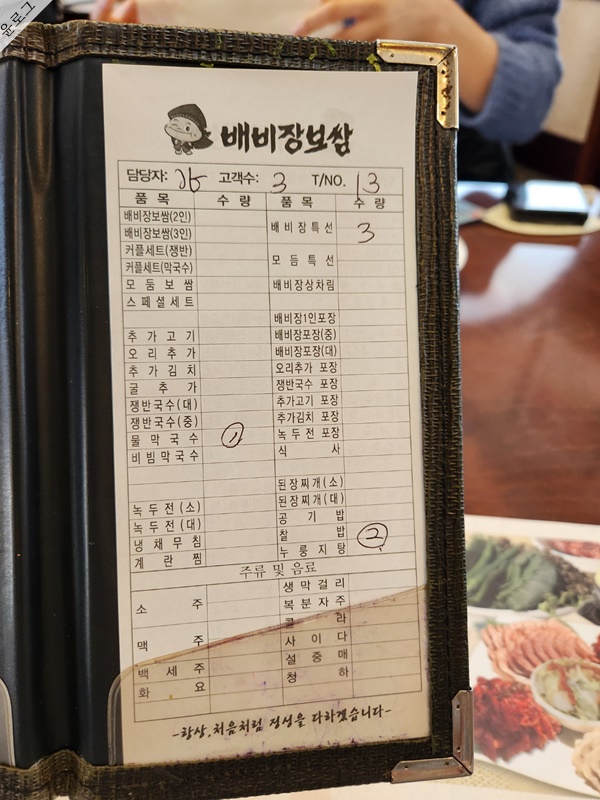 윤로그
배비장보쌈
담당자: 고객수: 3 T/NO. 13
품 목 수 량 품 목 수 량
배비장보쌈(2인)
배비장보쌈(3인) 배비장특선 3
커플세트(쟁반)
커플세트(막국수) 모듬특선
모둠보쌈 배비장상차림
스페셜세트
배비장1인포장
추가고기 배비장포장(중)
오리추가 배비장포장(대)
추가김치 오리추가 포장
굴추가 쟁반국수 포장
쟁반국수(대) 추가고기 포장
쟁반국수(중) 추가김치 포장
물막국수 1 녹두전 포장
비빔막국수 식사
된장찌개(소)
녹두전(소) 된장찌개(대)
녹두전(대) 공기밥
냉채무침 찰밥 2
계란찜 누룽지탕
주류 및 음료
생막걸리
소주 복분자주
콜라
맥주 사이다
백세주 설중매
화요 청하
-항상, 처음처럼 정성을 다하겠습니다-